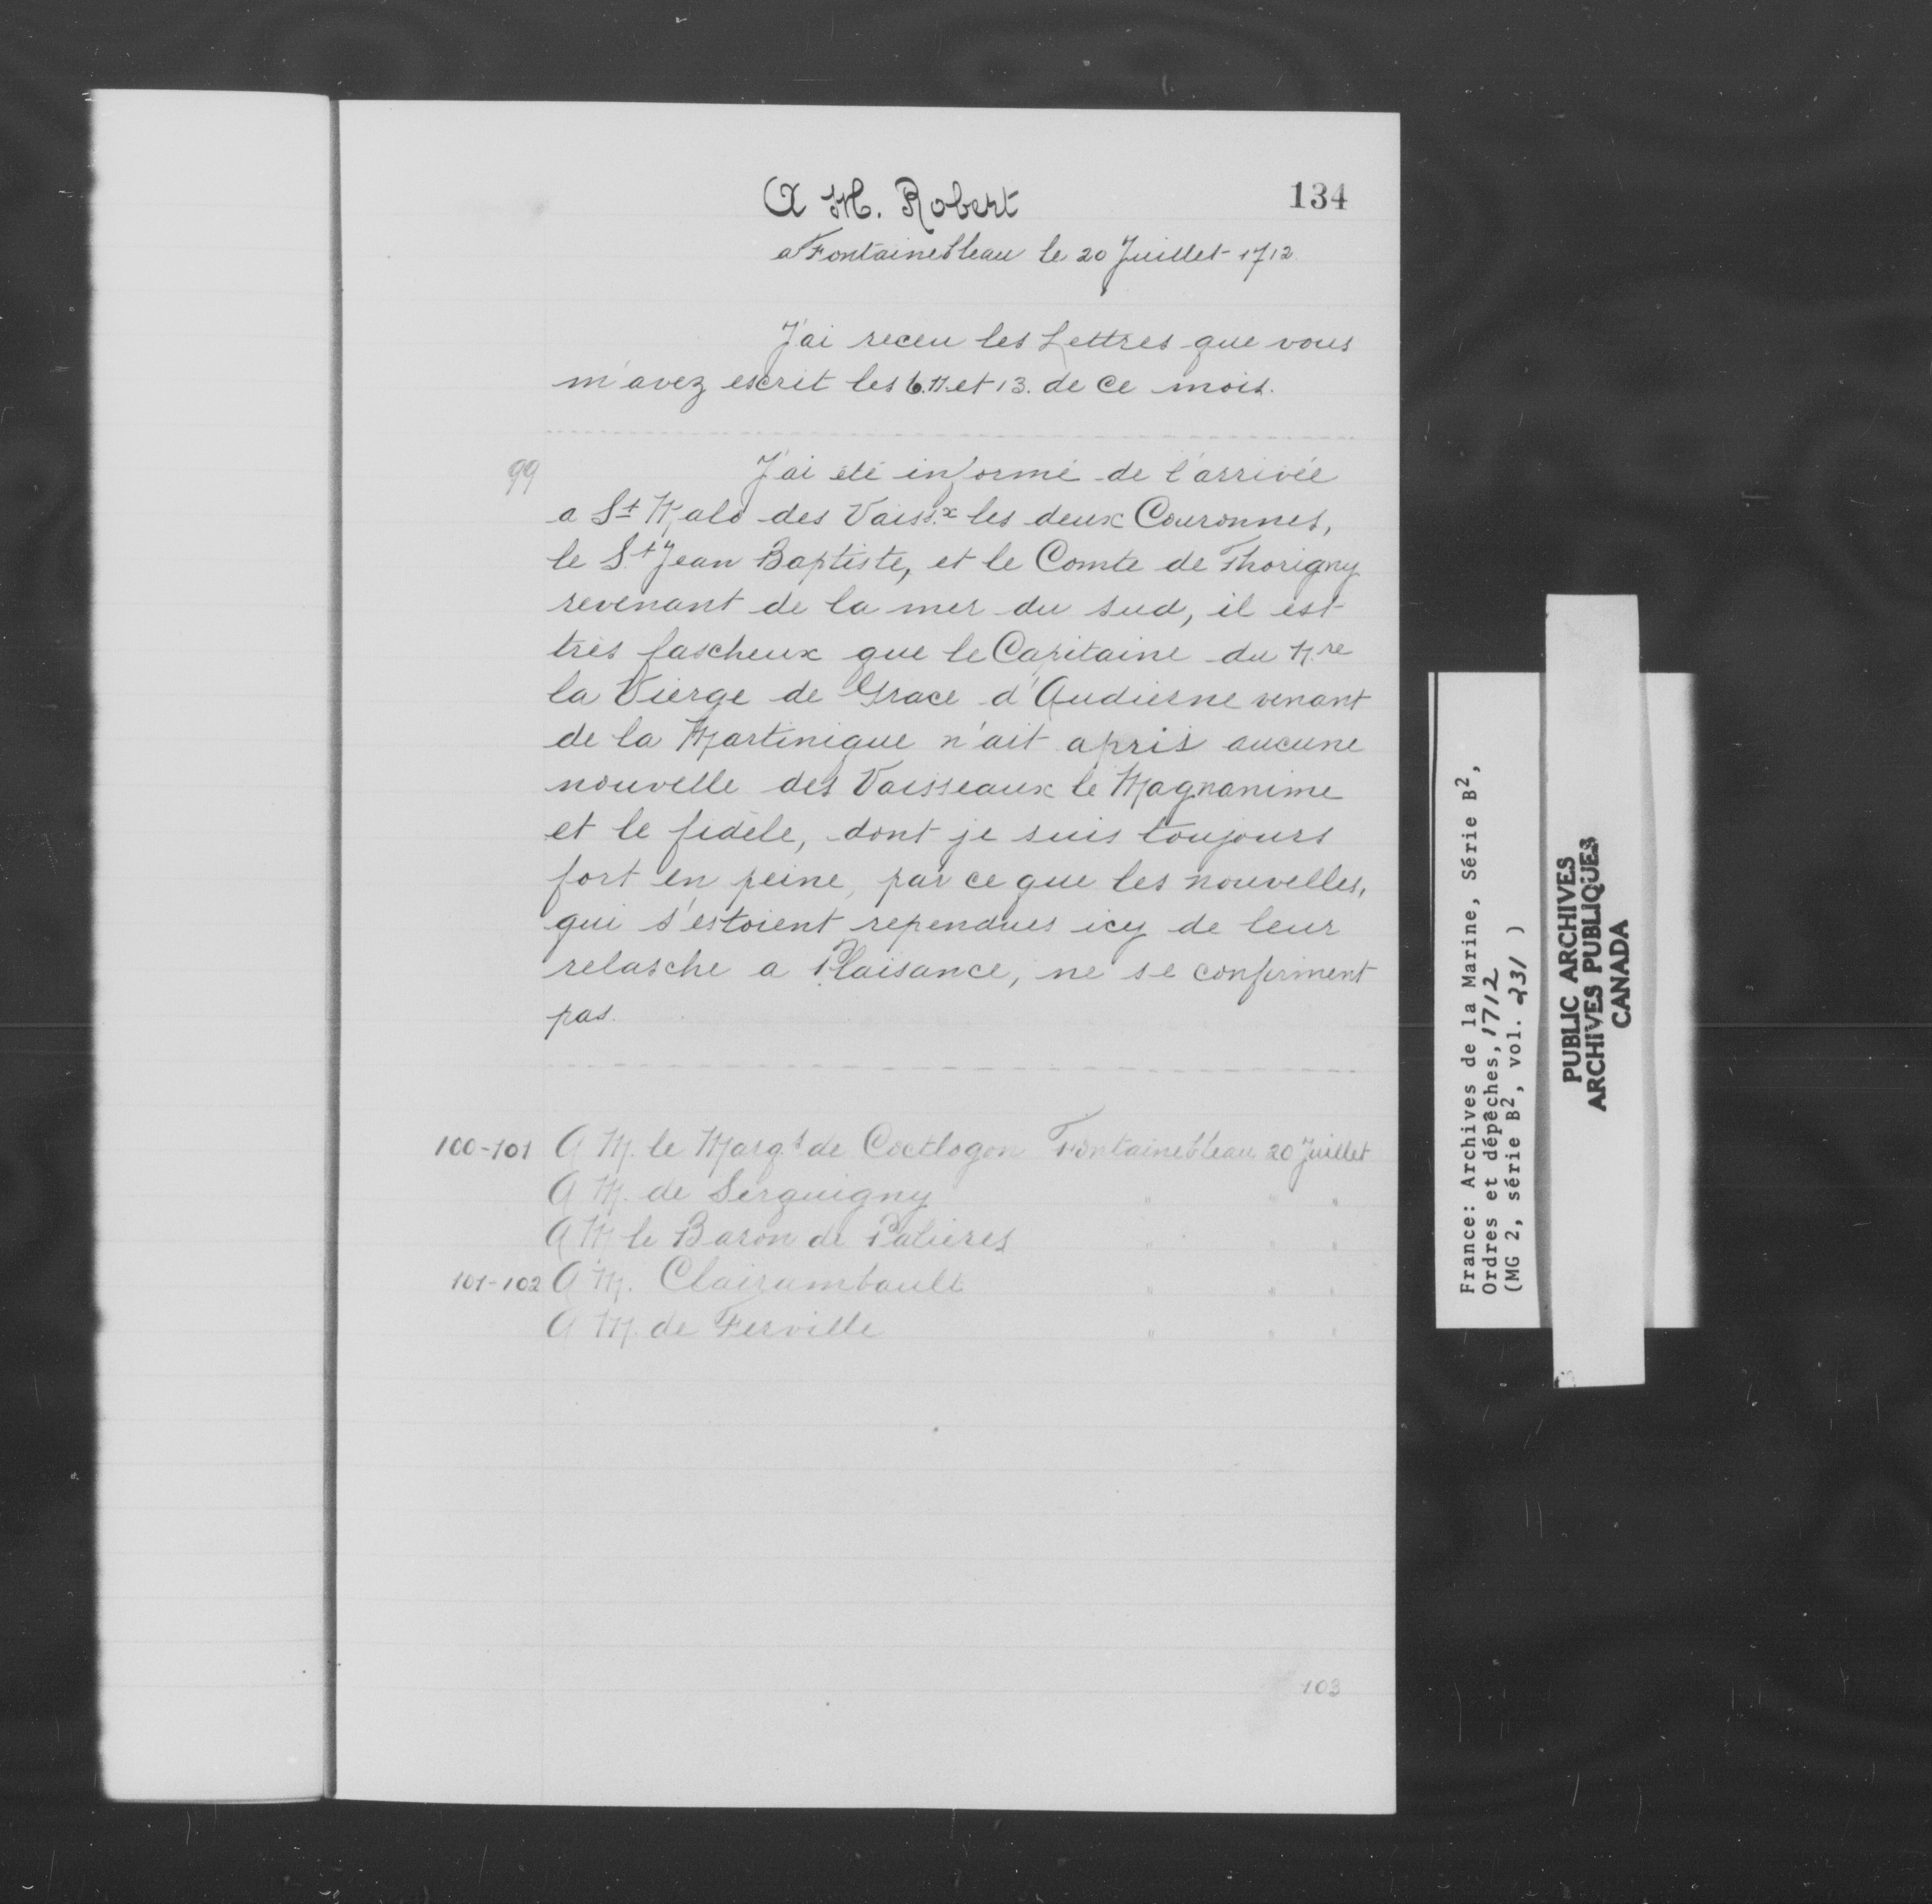 134
A M. Robert
a Fontainebleau le 20 Juillet 1712
J'ai receu les Lettres que vous
m'avez escrit les 6. 11. et 13. de ce mois.
99
J'ai été informé de l'arrivée
a St Malo des Vaiss.x les deux Couronnes,
le St Jean Baptiste, et le Comte de Thorigny
revenant de la mer du sud, il est
très fascheux que le Capitaine du N.re
la Vierge de Grace d'Audierne venant
de la Martinique n'ait apris aucune
nouvelle des Vaisseaux le Magnanime
et le fidèle, dont je suis toujours
fort en peine, par ce que les nouvelles,
qui s'estoient rependues icy de leur
relasche a Plaisance, ne se confirment
pas.
100-101 A M. le Marq.s de Coetlogon Fontainebleau 20 Juillet
A M. de Serquigny " " "
A M le Baron de Palieres " " "
101-102 A M. Clairambault " " "
A M. de Ferville " " "
103
France: Archives de la Marine, Série B2,
Ordres et dépêches, 1712
(MG 2, série B2, vol. 231 )
PUBLIC ARCHIVES
ARCHIVES PUBLIQUES
CANADA